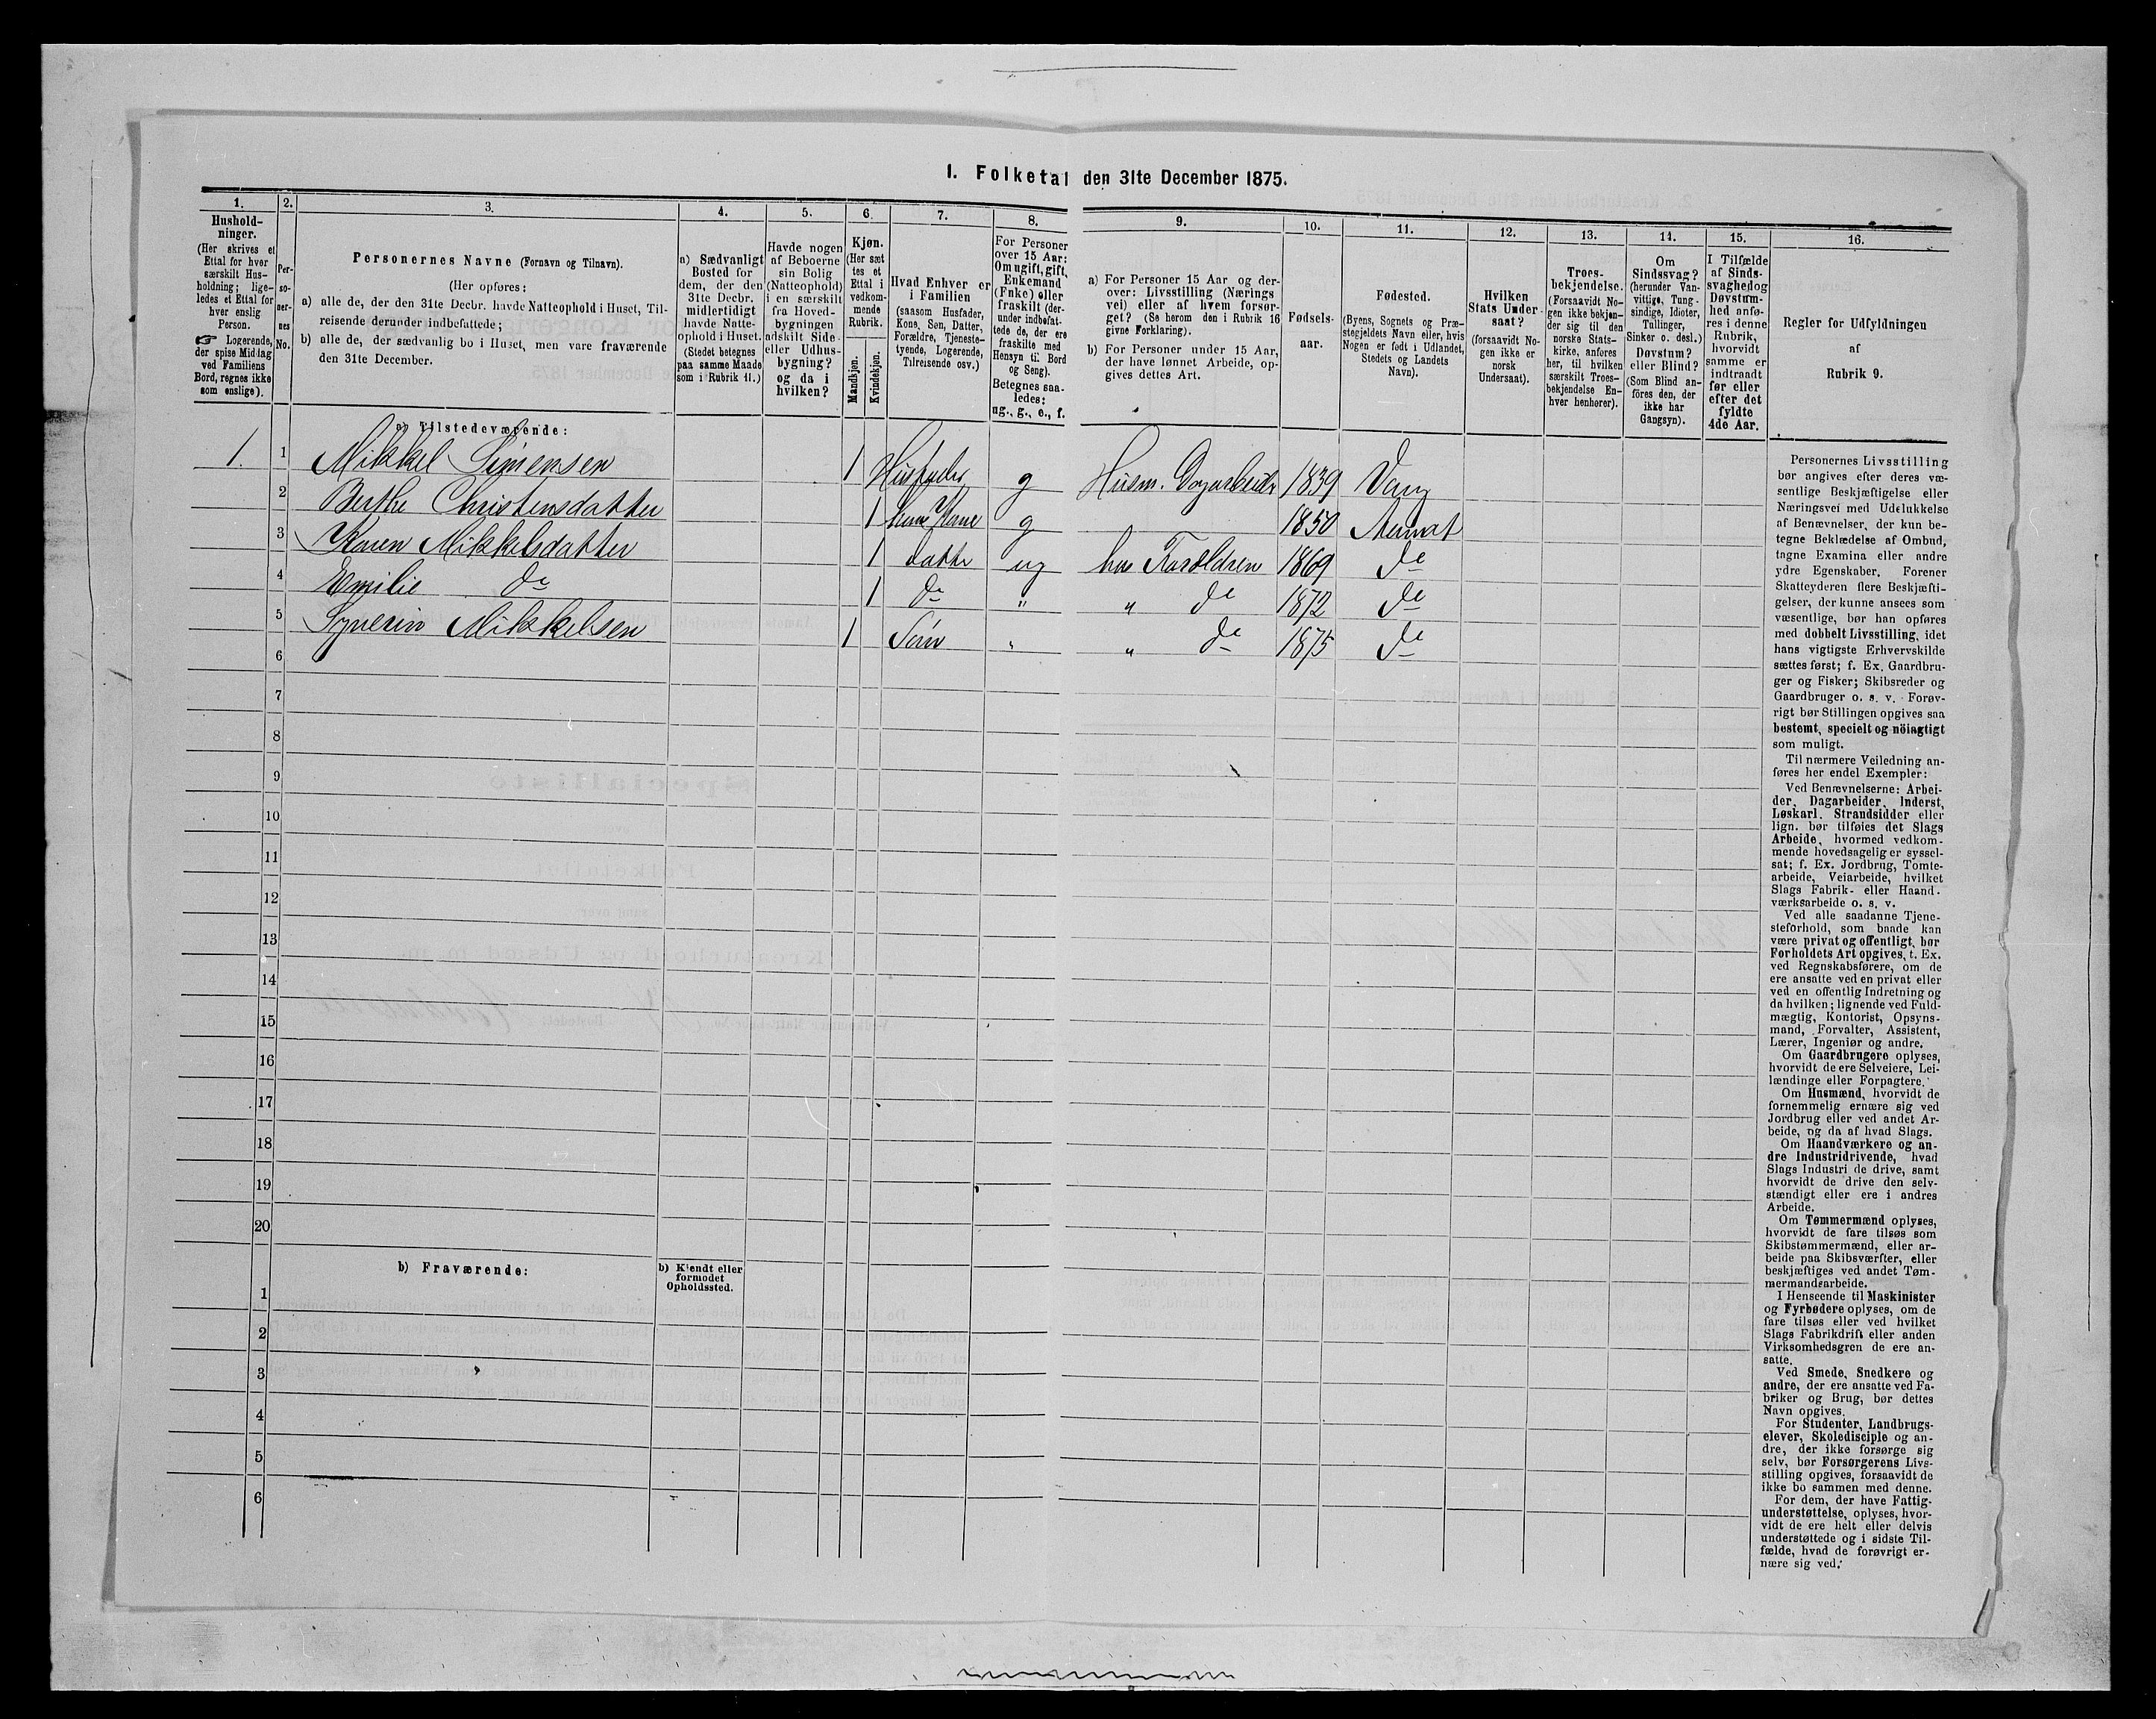 1. Folketal den 31te December 1875.
1. 2. 3. 4. 5. 6. 7. 8. 9. 10. 11. 12. 13. 14. 15. 16.
Hushold-
ninger.
(Her skrives et
Ettal for hver
særskilt Hus-
holdning; lige-
ledes et Ettal for
hver enslig
Person.
☞ Logerende,
der spise Middag
ved Familiens
Bord, regnes ikke
som enslige).
Per-
so-
ner-
nes
No.
Personernes Navne (Fornavn og Tilnavn).
(Her opføres:
a) alle de, der den 31te Decbr. havde Natteophold i Huset, Til-
reisende derunder indbefattede;
b) alle de, der sædvanlig bo i Huset, men vare fraværende
den 31te December.
a) Sædvanligt
Bosted for
dem, der den
31te Decbr.
midlertidigt
havde Natte-
ophold i Huset.
(Stedet betegnes
paa samme Maade
som i Rubrik 11.)
Havde nogen
af Beboerne
sin Bolig
(Natteophold)
i en særskilt
fra Hoved-
bygningen
adskilt Side-
eller Udhus-
bygning?
og da i
hvilken?
Kjøn.
(Her sæt
tes et
Ettal i
vedkom-
mende
Rubrik.
Mandkjøn.
Kvindekjøn.
Hvad Enhver er
i Familien
(saasom Husfader,
Kone, Søn, Datter,
Forældre, Tjeneste-
tyende, Logerende,
Tilreisende osv.)
For Personer
over 15 Aar:
Om ugift, gift,
Enkemand
(Enke) eller
fraskilt (der-
under indbefat-
tede de, der ere
fraskilte med
Hensyn til Bord
og Seng).
Betegnes saa-
ledes:
ug., g., e., f.
a) For Personer 15 Aar og der-
over: Livsstilling (Nærings
vei) eller af hvem forsør-
get? (Se herom den i Rubrik 16
givne Forklaring).
b) For Personer under 15 Aar,
der have lønnet Arbeide, op-
gives dettes Art.
Fødsels-
aar.
Fødested.
(Byens, Sognets og Præ-
stegjeldets Navn eller, hvis
Nogen er født i Udlandet,
Stedets og Landets
Navn).
Hvilken
Stats Under-
saat?
(forsaavidt No-
gen ikke er
norsk
Undersaat).
Troes-
bekjendelse.
(Forsaavidt No-
gen ikke bekjen-
der sig til den
norske Stats-
kirke, anføres
her, til hvilken
særskilt Troes-
bekjendelse En-
hver henhører).
Om
Sindssvag?
(herunder Van-
vittige, Tung-
sindige, Idioter,
Tullinger,
Sinker o. desl.)
Døvstum?
eller Blind?
(Som Blind an-
føres den, der
ikke har
Gangsyn).
I Tilfælde
af Sinds-
svaghed og
Døvstum-
hed anfø-
res i denne
Rubrik,
hvorvidt
samme er
indtraadt
før eller
efter det
fyldte
4de Aar.
Regler for Udfyldningen
af
Rubrik 9.
a) Tilstedeværende:
1. 1 Mikkel Simensen 1 Husfader g Husm. Dagarbeider 1839 Vang
2 Berthe Christensdatter 1 hans Kone g 1850 Aamot
3 Karen Mikkelsdatter 1 datter ug hos Forældren 1869 do
4 Emilie do 1 do " " do 1872 do
5 Syverin Mikkelsen 1 Søn " " do 1875 do
6
7
8
9
10
11
12
13
14
15
16
17
18
19
20
b) Fraværende:
b) Kjendt eller
formodet
Opholdssted.
1
2
3
4
5
6
Personernes Livsstilling
bør angives efter deres væ-
sentlige Beskjæftigelse eller
Næringsvei med Udelukkelse
af Benævnelser, der kun be-
tegne Beklædelse af Ombud,
tagne Examina eller andre
ydre Egenskaber. Forener
Skatteyderen flere Beskjæfti-
gelser, der kunne ansees som
væsentlige, bør han opføres
med dobbelt Livsstilling, idet
hans vigtigste Erhvervskilde
sættes først; f. Ex. Gaardbru-
ger og Fisker; Skibsreder og
Gaardbruger o. s. v. Forøv-
rigt bør Stillingen opgives saa
bestemt, specielt og nöiagtigt
som muligt.
Til nærmere Veiledning an-
føres her endel Exempler:
Ved Benævnelserne: Arbei-
der, Dagarbeider, Inderst,
Løskarl, Strandsidder eller
lign. bør tilføies det Slags
Arbeide, hvormed vedkom-
mende hovedsagelig er syssel-
sat; f. Ex. Jordbrug, Tomte-
arbeide, Veiarbeide, hvilket
Slags Fabrik- eller Haand-
værksarbeide o. s. v.
Ved alle saadanne Tjene-
steforhold, som baade kan
være privat og offentligt, bør
Forholdets Art opgives, t. Ex.
ved Regnskabsførere, om de
ere ansatte ved en privat eller
ved en offentlig Indretning og
da hvilken; lignende ved Fuld-
mægtig, Kontorist, Opsyns-
mand, Forvalter, Assistent,
Lærer, Ingeniør og andre.
Om Gaardbrugere oplyses,
hvorvidt de ere Selveiere, Lei-
lændinge eller Forpagtere.
Om Husmænd, hvorvidt de
fornemmelig ernære sig ved
Jordbrug eller ved andet Ar-
beide, og da af hvad Slags.
Om Haandværkere og an-
dre Industridrivende, hvad
Slags Industri de drive, samt
hvorvidt de drive den selv-
stændigt eller ere i andres
Arbeide.
Om Tømmermænd oplyses,
hvorvidt de fare tilsøs som
Skibstømmermænd, eller ar-
beide paa Skibsværfter, eller
beskjæftiges ved andet Tøm-
mermandsarbeide.
I Henseende til Maskinister
og Fyrbødere oplyses, om de
fare tilsøs eller ved hvilket
Slags Fabrikdrift eller anden
Virksomhedsgren de ere an-
satte.
Ved Smede, Snedkere og
andre, der ere ansatte ved Fa-
briker og Brug, bør dettes
Navn opgives.
For Studenter, Landbrugs-
elever, Skoledisciple og an-
dre, der ikke forsørge sig
selv, bør Forsørgerens Livs-
stilling opgives, forsaavidt de
ikke bo sammen med denne.
For dem, der have Fattig-
understøttelse, oplyses, hvor-
vidt de ere helt eller delvis
understøttede og i sidste Til-
fælde, hvad de forøvrigt er-
nære sig ved.